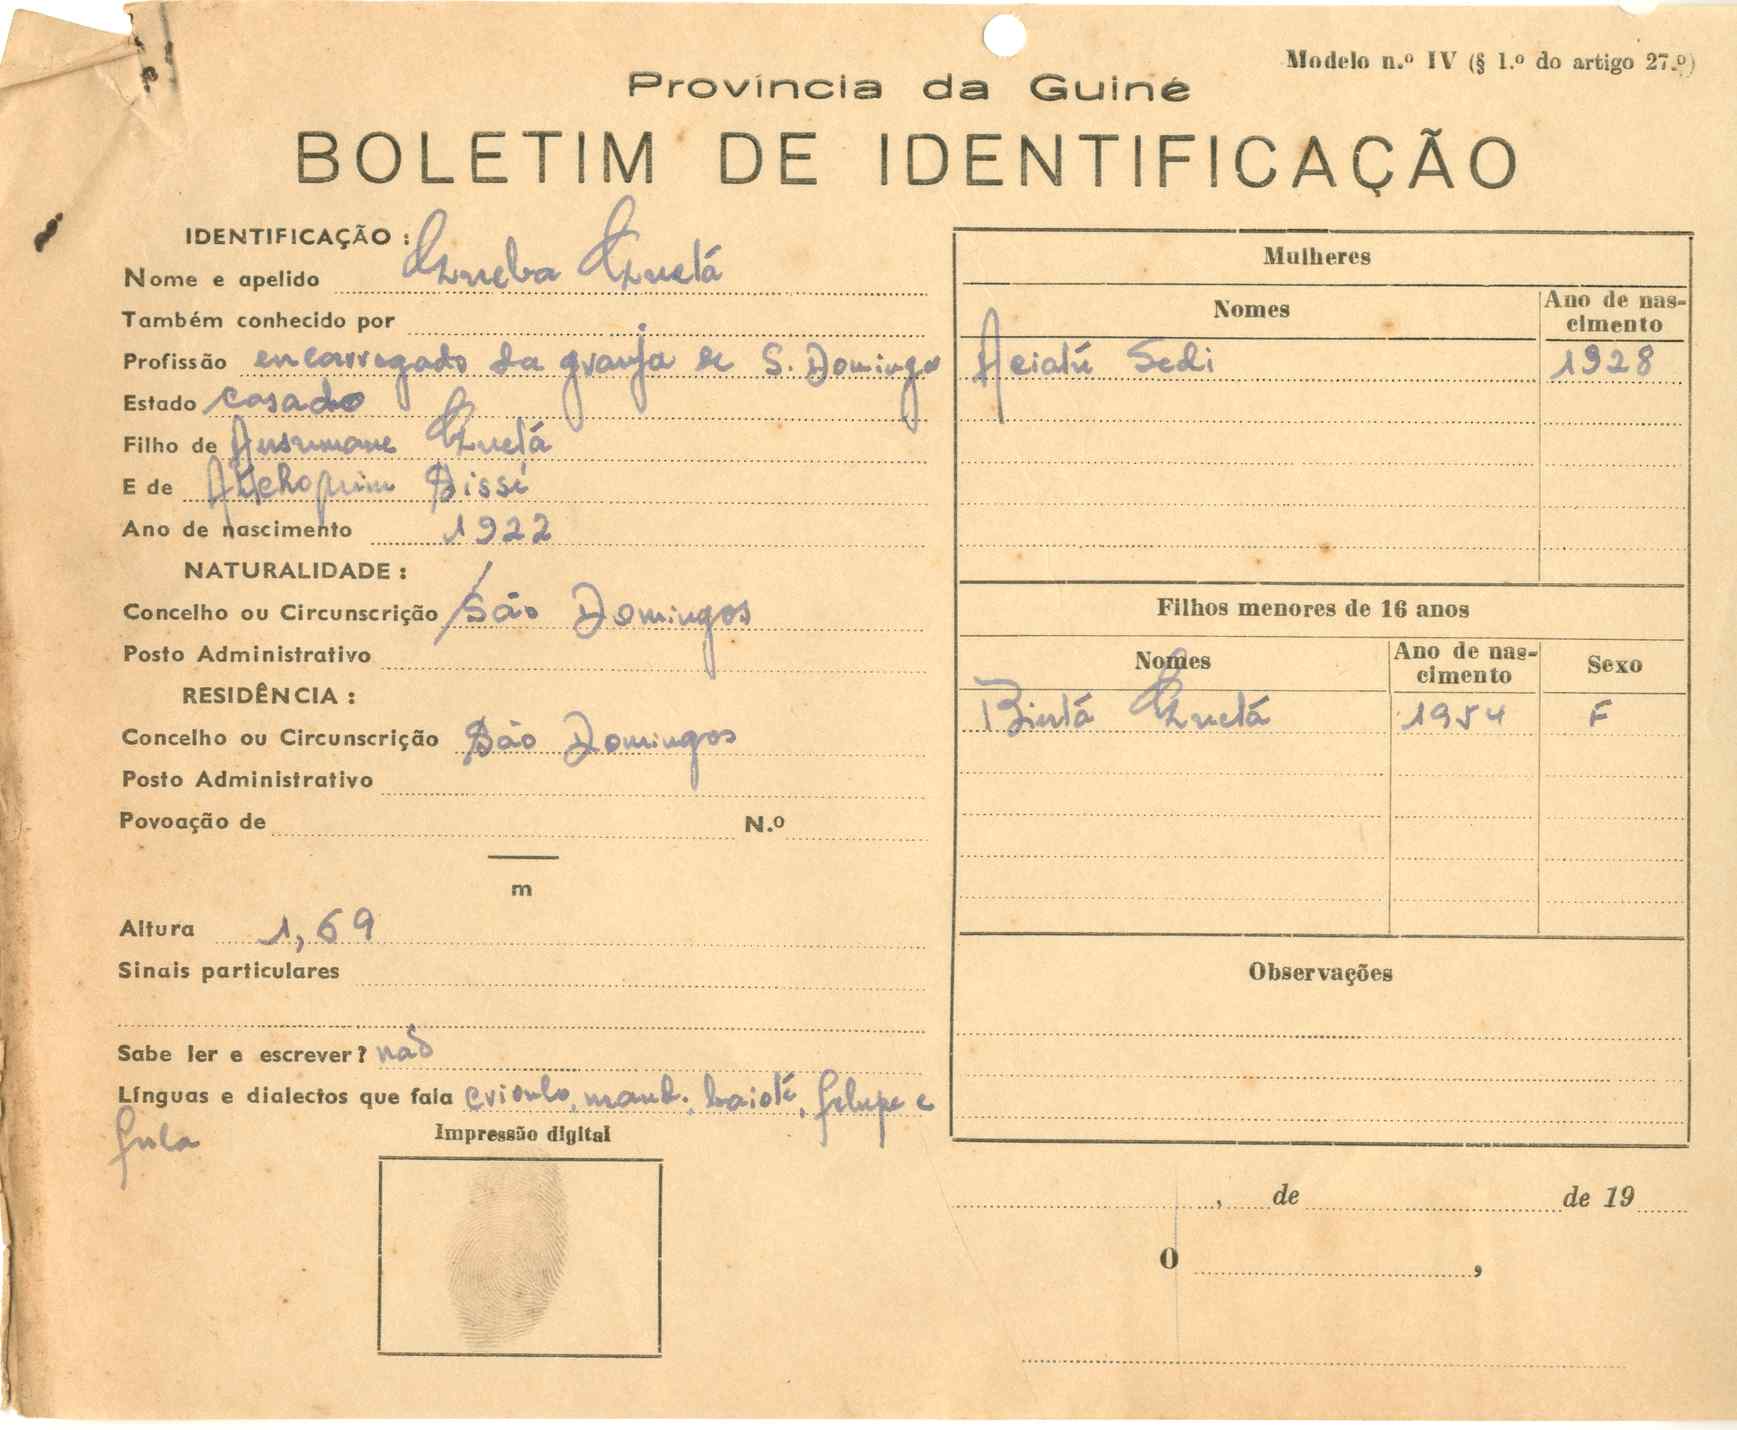 Modelo n.º IV (§ 1.º do artigo 27.º)
Província da Guiné
BOLETIM DE IDENTIFICAÇÃO
IDENTIFICAÇÃO :
Nome e apelido
Também conhecido por
Profissão encarregado da granja de S. Domingos
Estado casado
Filho de Ansumane
E de Sissé
Ano de nascimento 1922
NATURALIDADE :
Concelho ou Circunscrição São Domingos
Posto Administrativo
RESIDÊNCIA :
Concelho ou Circunscrição São Domingos
Posto Administrativo
Povoação de N.º
m
Altura 1,69
Sinais particulares
Sabe ler e escrever? não
Línguas e dialectos que fala crioulo, mand. baioté, felupe e
fula
Impressão digital
Mulheres
Nomes Ano de nas-
cimento
Sedi 1928
Filhos menores de 16 anos
Nomes Ano de nas-
cimento Sexo
Bintá 1954 F
Observações
, de de 19
O ,